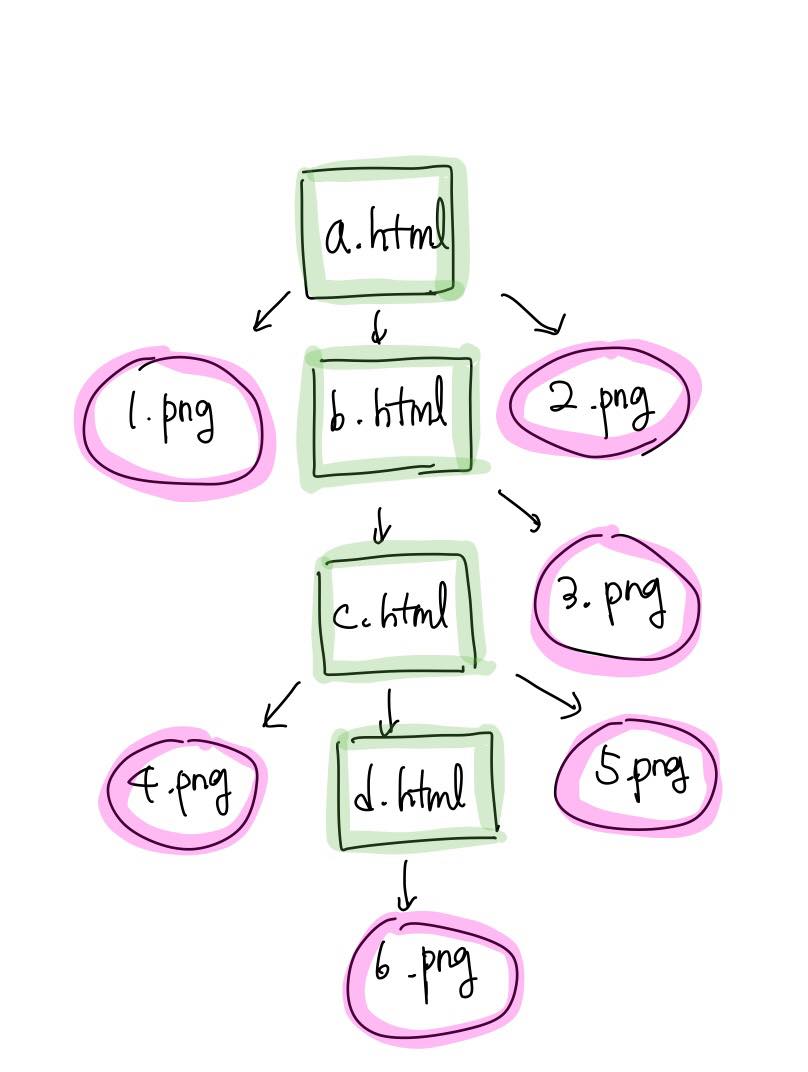 a.html
1.png
b.html
2.png
c.html
3.png
4.png
d.html
5.png
6.png